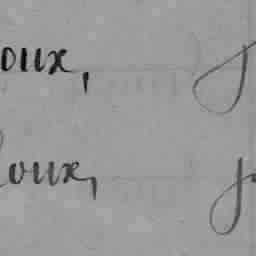 oux, j
oux, j